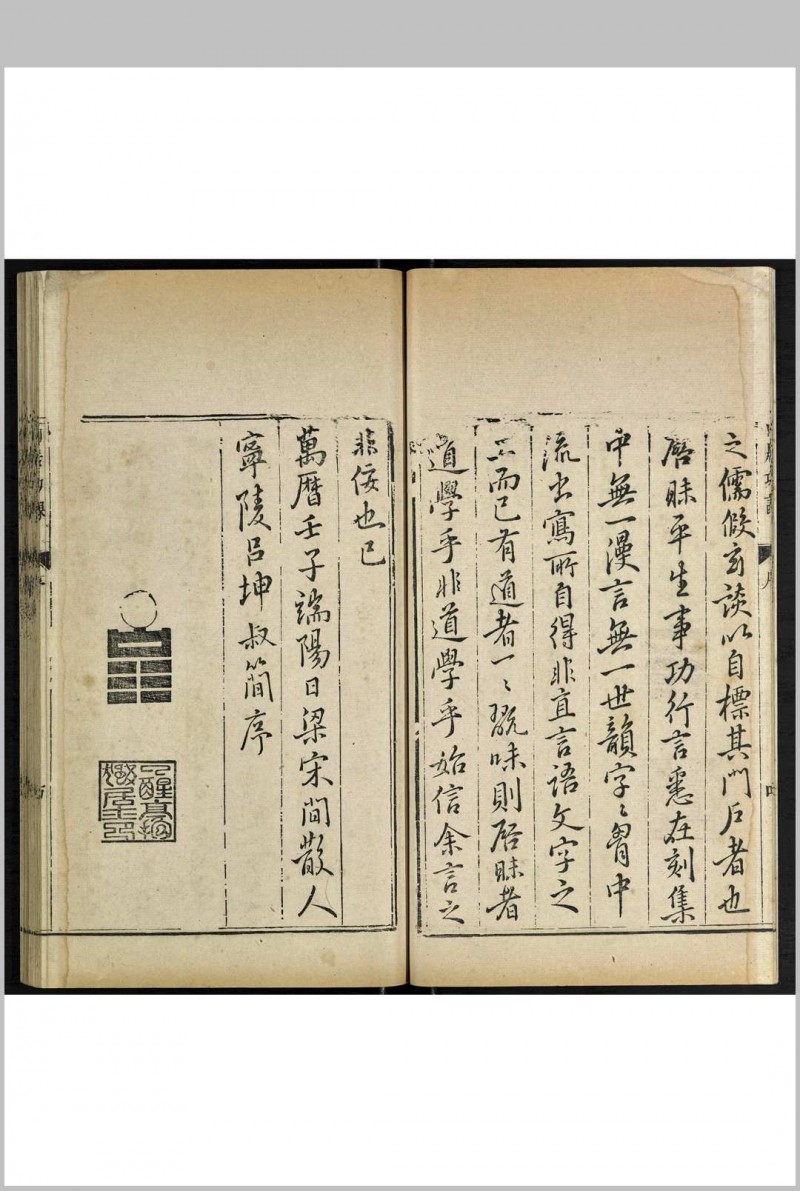 之儒假玄談以自標其門戶者也
啓昧平生事功行言悉在刻集
中無一漫言無一世韻字〻胷中
流出寫所自得非直言語文字之
工而已有道者一〻翫味則啓昧者
道學乎非道學乎始信余言之
非佞也已
萬曆壬子端陽日梁宋間散人
寧陵呂坤叔簡序